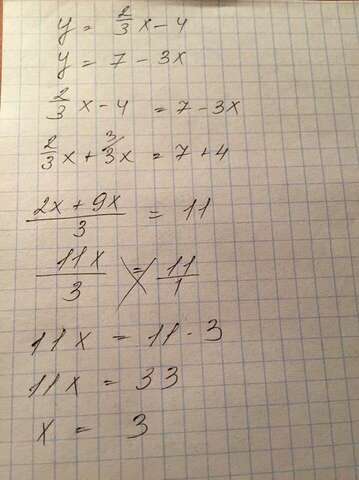 y = 2/3 x - 4
y = 7 - 3x
2/3 x - 4 = 7 - 3x
2/3 x + 3/ 3x = 7 + 4
(2x + 9x)/3 = 11
11x/3 = 11/1
11x = 11 · 3
11x = 33
x = 3